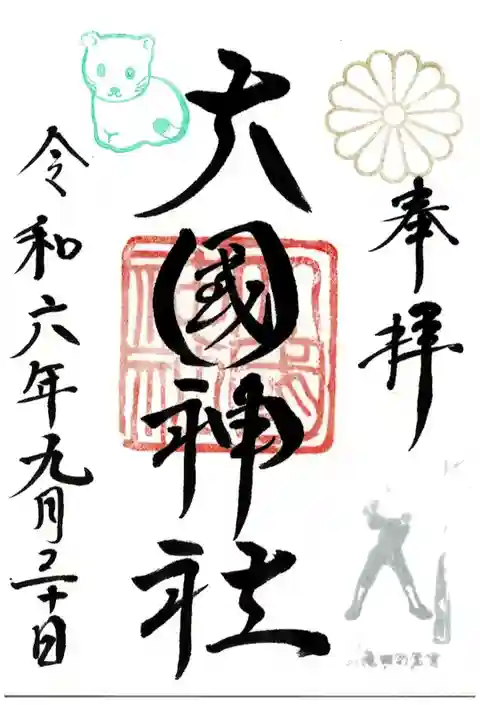 奉拝
大國神社
令和六年九月二十日